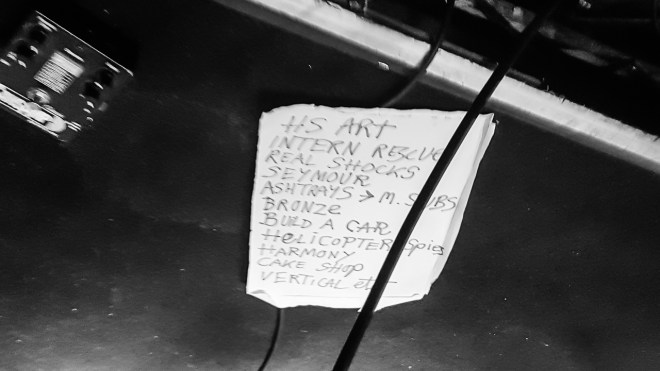 HS ART
INTERN RESCUE
REAL SHOCKS
SEYMOUR
ASHTRAYS > M. SUBS
BRONZE
BUILD A CAR
HELICOPTER Spies
HARMONY
CAKE SHOP
VERTICAL etc